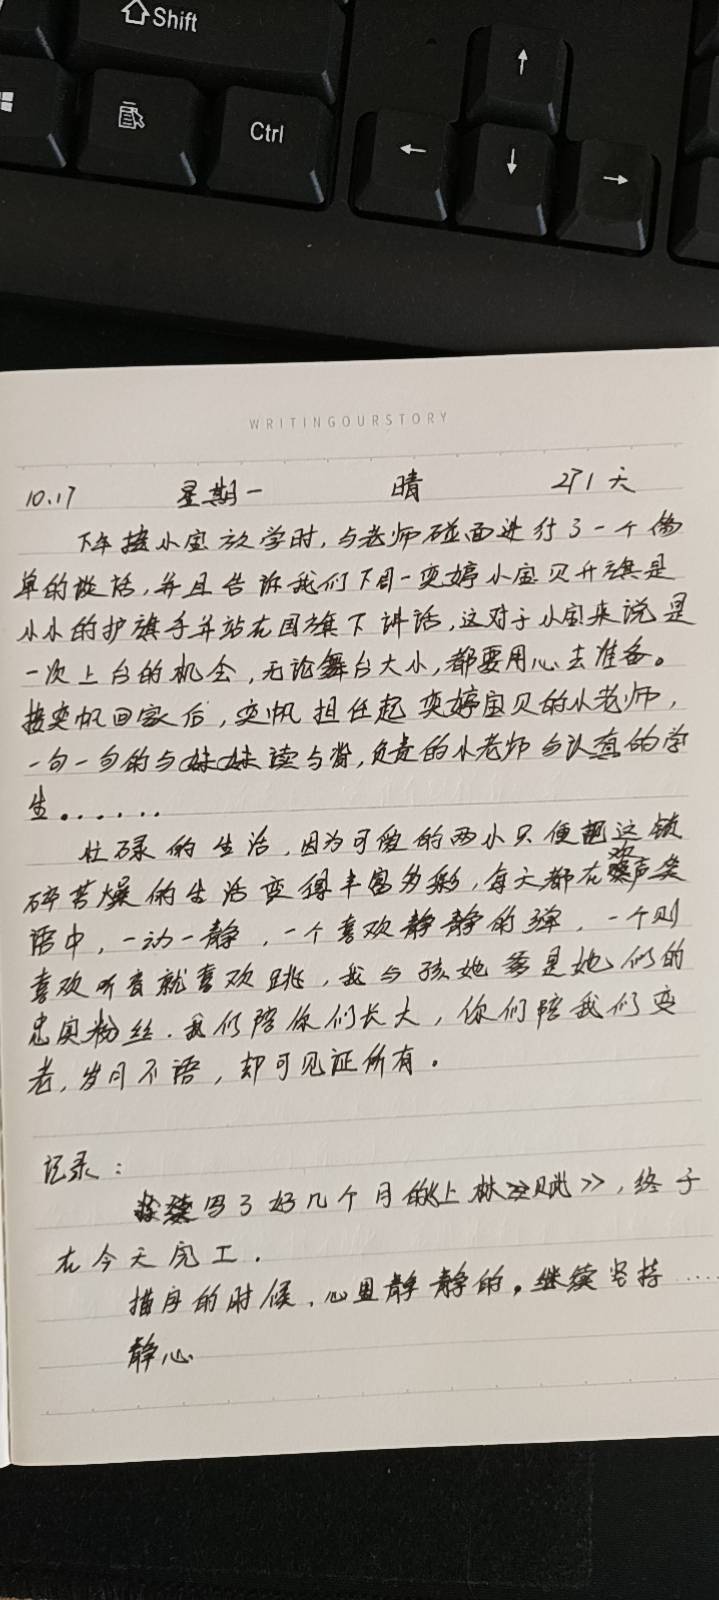 Shift
Ctrl
WRITINGOURSTORY
10.17 星期一 晴 271天
下午接小宝放学时,与老师碰面进行了一个简
单的谈话,并且告诉我们下周一奕婷小宝贝升旗是
小小的护旗手并站在国旗下讲话,这对于小宝来说是
一次上台的机会,无论舞台大小,都要用心去准备。
接奕帆回家后,奕帆担任起奕婷宝贝的小老师,
一句一句的与妹妹读与背,负责的小老师与认真的学
生......
忙碌的生活,因为可爱的两小只便把这琐
碎苦燥的生活变得丰富多彩,每天都在欢声笑
语中,一动一静,一个喜欢静静的弹,一个则
喜欢听音就喜欢跳,我与孩她爹是她们的
忠实粉丝.我们陪你们长大,你们陪我们变
老,岁月不语,却可见证所有.
记录:
写了好几个月的《上林赋》,终于
在今天完工.
描字的时候,心里静静的。继续坚持.....
静心